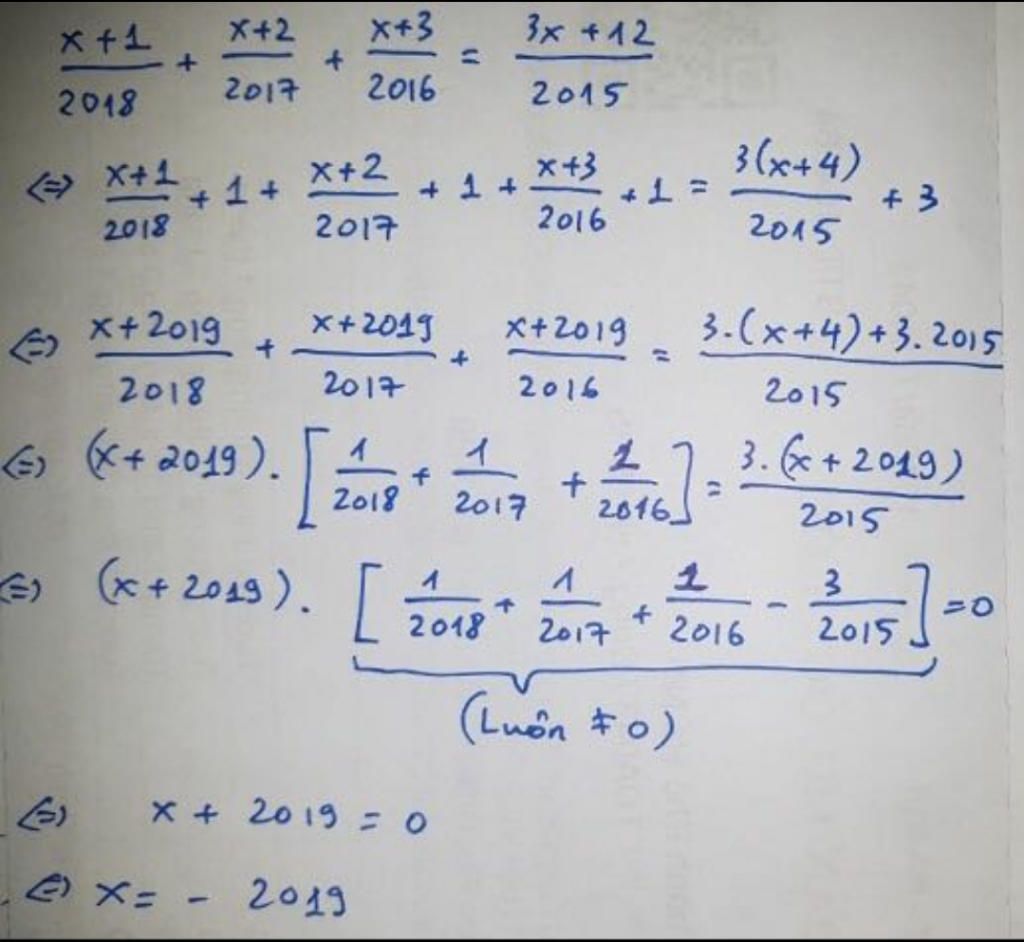 x+1/2018 + x+2/2017 + x+3/2016 = 3x+12/2015
<=> x+1/2018 + 1 + x+2/2017 + 1 + x+3/2016 + 1 = 3(x+4)/2015 + 3
<=> x+2019/2018 + x+2019/2017 + x+2019/2016 = 3.(x+4)+3.2015/2015
<=> (x+2019).[1/2018 + 1/2017 + 1/2016] = 3.(x+2019)/2015
<=> (x+2019).[1/2018 + 1/2017 + 1/2016 - 3/2015] = 0
(Luôn ≠ 0)
<=> x + 2019 = 0
<=> x = - 2019